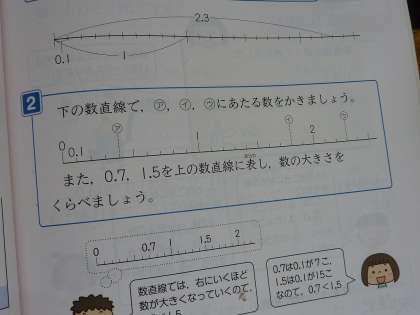 2.3
0.1 1
2
下の数直線で，㋐，㋑，㋒にあたる数をかきましょう。
㋐ ㋑ ㋒
0 0.1 1 2
また，0.7，1.5を上の数直線に表し，数の大きさを
くらべましょう。
0 0.7 1 1.5 2
数直線では，右にいくほど
数が大きくなっていくので，
0.7は0.1が7こ，
1.5は0.1が15こ
なので，0.7＜1.5